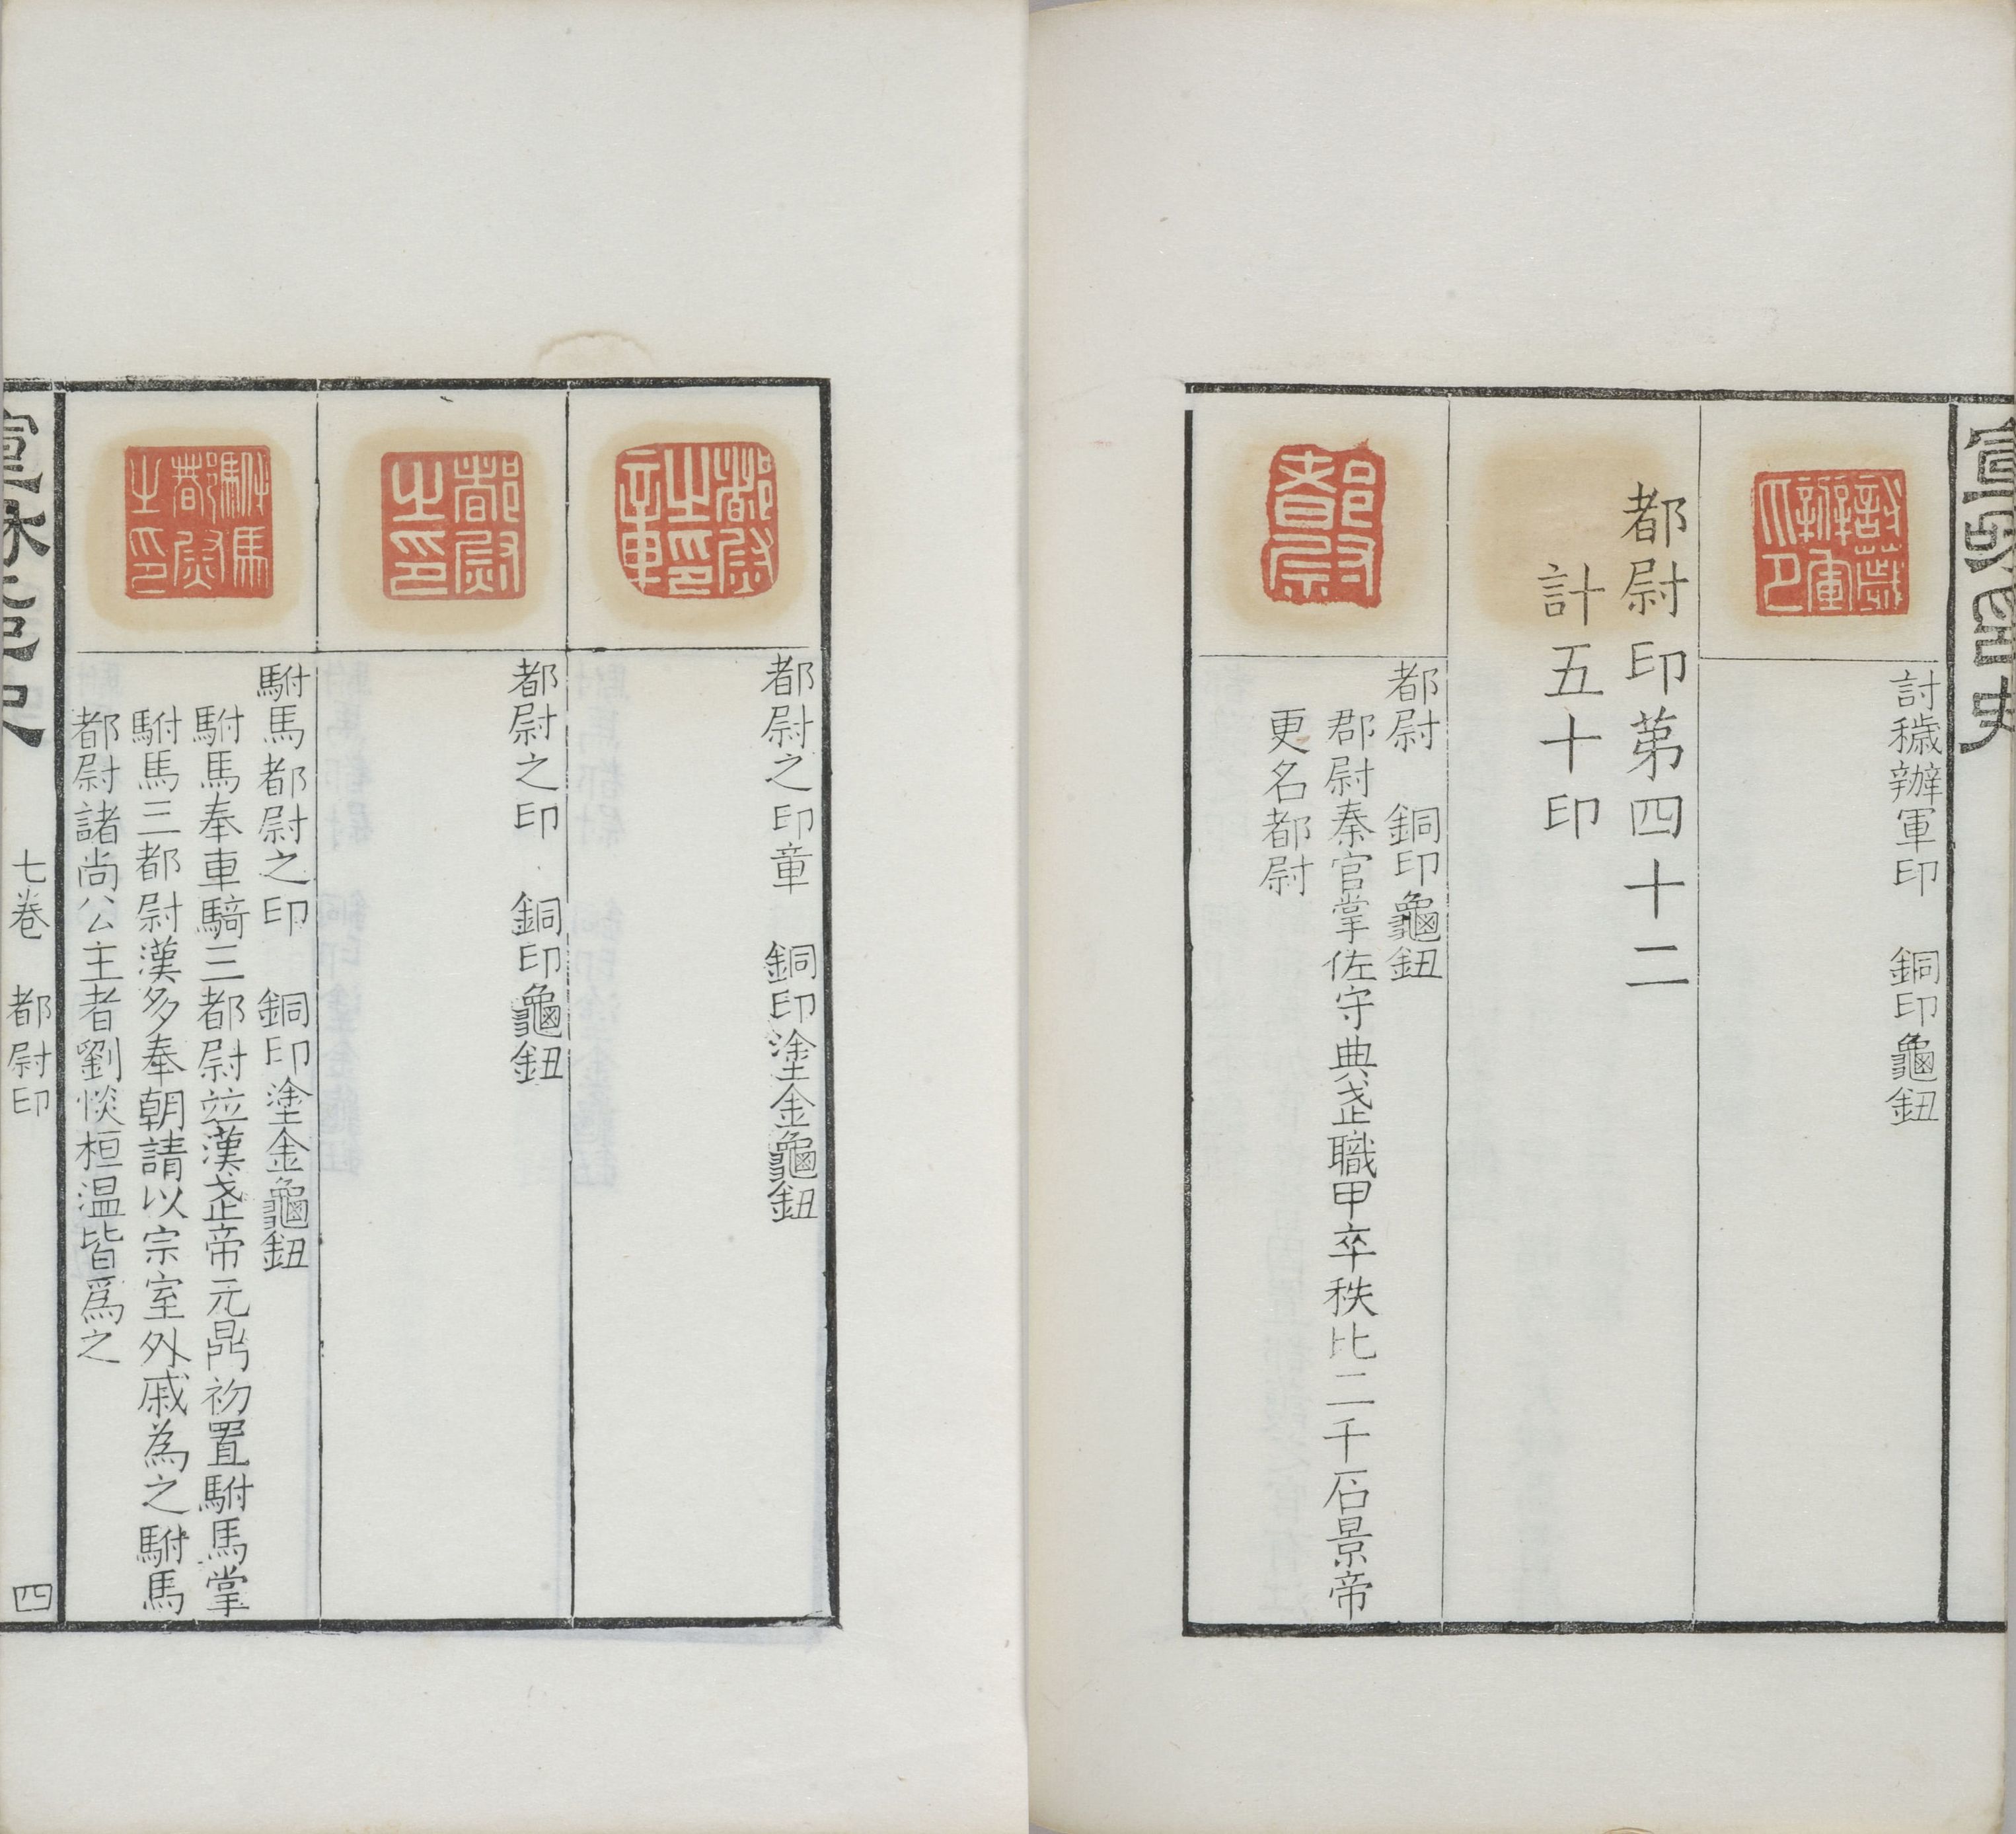 宣和印史
討穢辦軍印
討穢辦軍印　銅印龜鈕
都尉印第四十二
計五十印
都尉
都尉　銅印龜鈕
郡尉秦官掌佐守典武職甲卒秩比二千石景帝
更名都尉
都尉之印章
都尉之印章　銅印塗金龜鈕
都尉之印
都尉之印　銅印龜鈕
駙馬都尉之印
駙馬都尉之印　銅印塗金龜鈕
駙馬奉車騎三都尉竝漢武帝元鼎初置駙馬掌
駙馬三都尉漢多奉朝請以宗室外戚為之駙馬
都尉諸尚公主者劉惔桓温皆爲之
宣和印史　七卷　都尉印　四